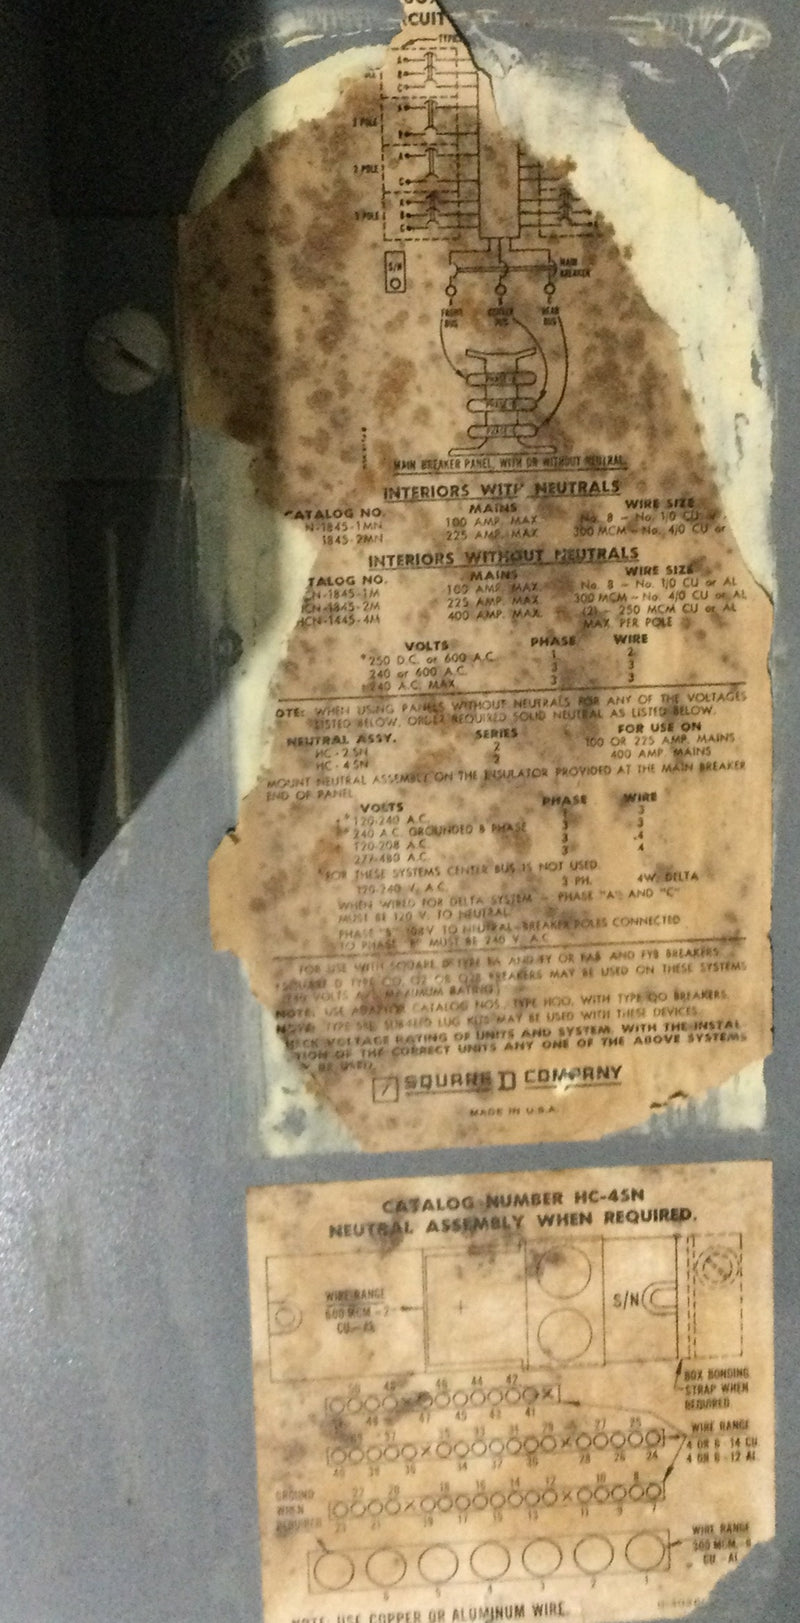 CUIT
2 POLE
2 POLE
3 POLE
S/N
MAIN
BREAKER
FRONT
BUS
CENTER
BUS
REAR
BUS
MAIN BREAKER PANEL, WITH OR WITHOUT NEUTRAL.
INTERIORS WITH NEUTRALS
CATALOG NO. MAINS WIRE SIZE
N-1845-1MN 100 AMP. MAX. No. 8 - No. 1/0 CU or
1845-2MN 225 AMP. MAX. 300 MCM - No. 4/0 CU or
INTERIORS WITHOUT NEUTRALS
TALOG NO. MAINS WIRE SIZE
CN-1845-1M 100 AMP. MAX. No. 8 - No. 1/0 CU or AL
ICN-1845-2M 225 AMP. MAX. 300 MCM - No. 4/0 CU or AL
HCN-1445-4M 400 AMP. MAX. (2) - 250 MCM CU or AL
MAX. PER POLE
VOLTS PHASE WIRE
*250 D.C. or 600 A.C. 1 2
240 or 600 A.C. 3 3
240 A.C. MAX. 3 3
OTE: WHEN USING PANELS WITHOUT NEUTRALS FOR ANY OF THE VOLTAGES
LISTED BELOW, ORDER REQUIRED SOLID NEUTRAL AS LISTED BELOW.
NEUTRAL ASSY. SERIES FOR USE ON
HC - 2SN 2 100 OR 225 AMP. MAINS
HC - 4SN 2 400 AMP. MAINS
MOUNT NEUTRAL ASSEMBLY ON THE INSULATOR PROVIDED AT THE MAIN BREAKER
END OF PANEL
VOLTS PHASE WIRE
120-240 A.C. 1 3
240 A.C. GROUNDED B PHASE 3 3
120-208 A.C. 3 4
277-480 A.C. 3 4
*FOR THESE SYSTEMS CENTER BUS IS NOT USED.
120-240 V. A.C. 3 PH. 4W. DELTA
WHEN WIRED FOR DELTA SYSTEM - PHASE "A" AND "C"
MUST BE 120 V. TO NEUTRAL
PHASE "B" 208V TO NEUTRAL-BREAKER POLES CONNECTED
TO PHASE "B" MUST BE 240 V. A.C.
FOR USE WITH SQUARE D TYPE FA AND FY OR FAB AND FYB BREAKERS.
SQUARE D TYPE BREAKERS MAY BE USED ON THESE SYSTEMS
VOLTS MAXIMUM RATING
NOTE: USE ADAPTER CATALOG NOS. TYPE HQO, WITH TYPE QO BREAKERS.
NOTE: TYPE SUB-FEED LUG KITS MAY BE USED WITH THESE DEVICES.
ECK VOLTAGE RATING OF UNITS AND SYSTEM. WITH THE INSTAL
TION OF THE CORRECT UNITS ANY ONE OF THE ABOVE SYSTEMS
Y BE USED.
SQUARE D COMPANY
MADE IN U.S.A.
CATALOG NUMBER HC-4SN
NEUTRAL ASSEMBLY WHEN REQUIRED.
WIRE RANGE
600 MCM - 2
CU - AL
S/N
BOX BONDING
STRAP WHEN
REQUIRED
44 42
47 45 43 41
WIRE RANGE
4 OR 6 - 14 CU
4 OR 6 - 12 AL
28 26 24
GROUND
WHEN
REQUIRED
14 12 10 8
11 9 7
WIRE RANGE
300 MCM - 6
CU - AL
6 5 4 3 2 1
NOTE USE COPPER OR ALUMINUM WIRE